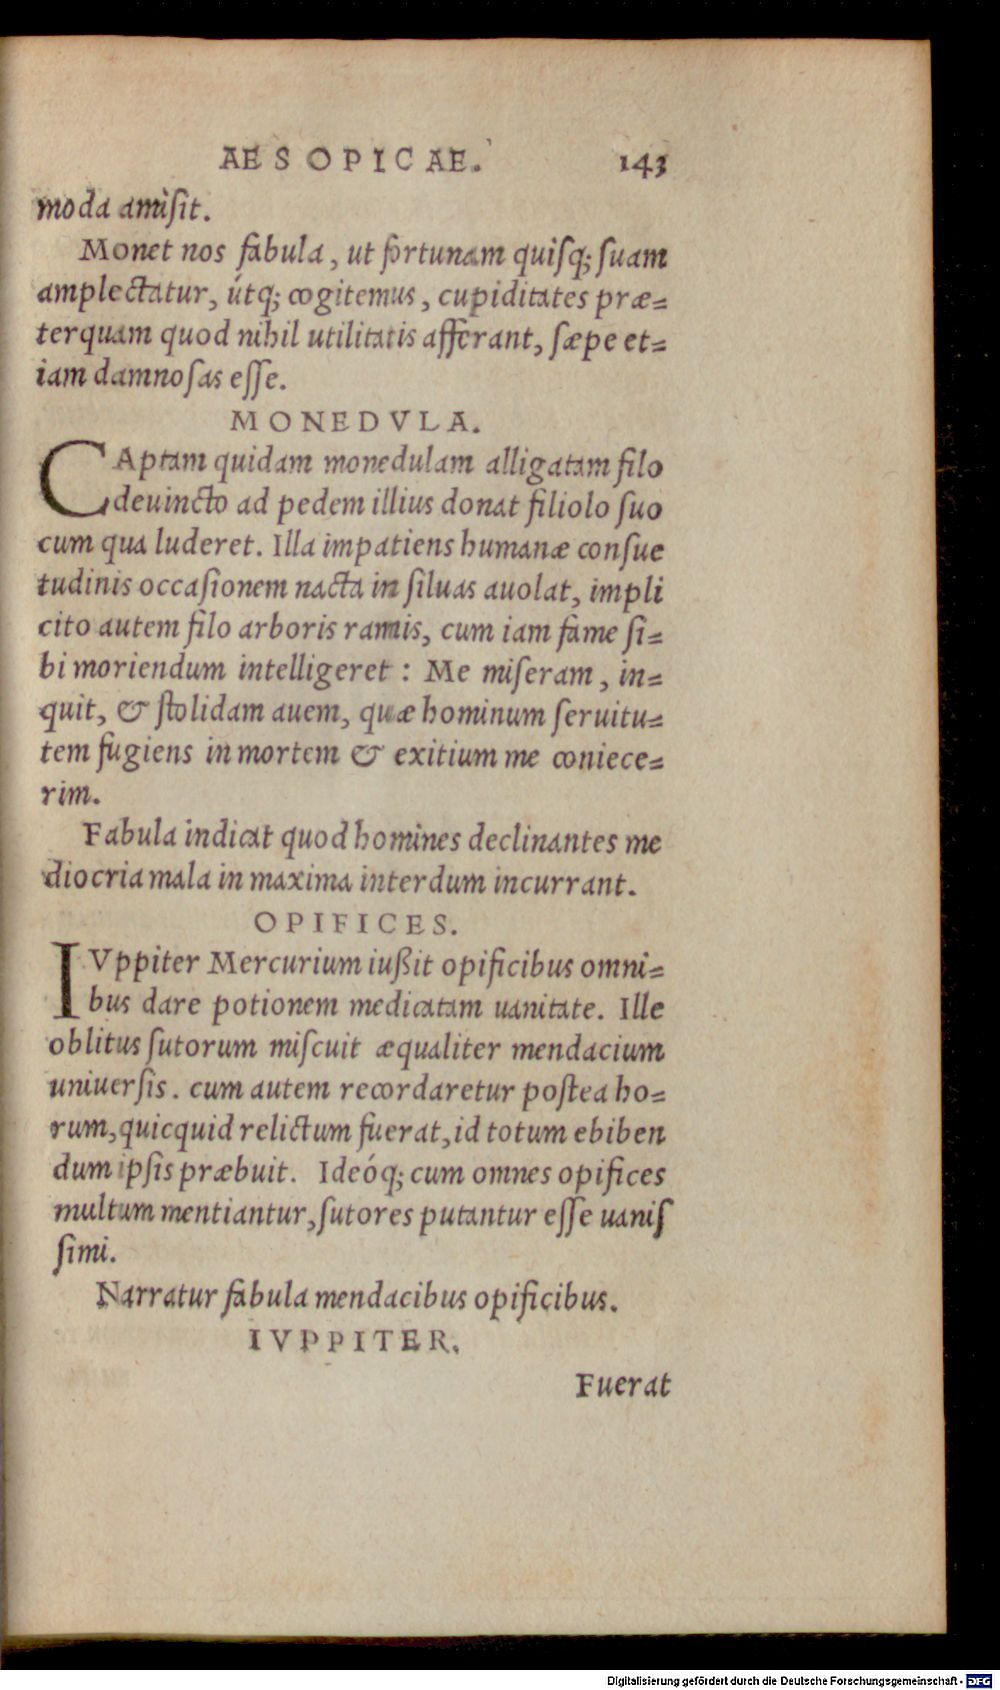 AESOPICAE. 143
moda amisit.
Monet nos fabula, ut fortunam quisq; suam
amplectatur, útq; cogitemus, cupiditates præ=
terquam quod nihil utilitatis afferant, sæpe et=
iam damnosas esse.
MONEDVLA.
CAptam quidam monedulam alligatam filo
deuincto ad pedem illius donat filiolo suo
cum qua luderet. Illa impatiens humanæ consue
tudinis occasionem nacta in siluas auolat, impli
cito autem filo arboris ramis, cum iam fame si=
bi moriendum intelligeret : Me miseram, in=
quit, & stolidam auem, quæ hominum seruitu=
tem fugiens in mortem & exitium me coniece=
rim.
Fabula indicat quod homines declinantes me
diocria mala in maxima interdum incurrant.
OPIFICES.
IVppiter Mercurium iußit opificibus omni=
bus dare potionem medicatam uanitate. Ille
oblitus sutorum miscuit æqualiter mendacium
uniuersis. cum autem recordaretur postea ho=
rum, quicquid relictum fuerat, id totum ebiben
dum ipsis præbuit. Ideóq; cum omnes opifices
multum mentiantur, sutores putantur esse uanis
simi.
Narratur fabula mendacibus opificibus.
IVPPITER.
Fuerat
Digitalisierung gefördert durch die Deutsche Forschungsgemeinschaft - DFG